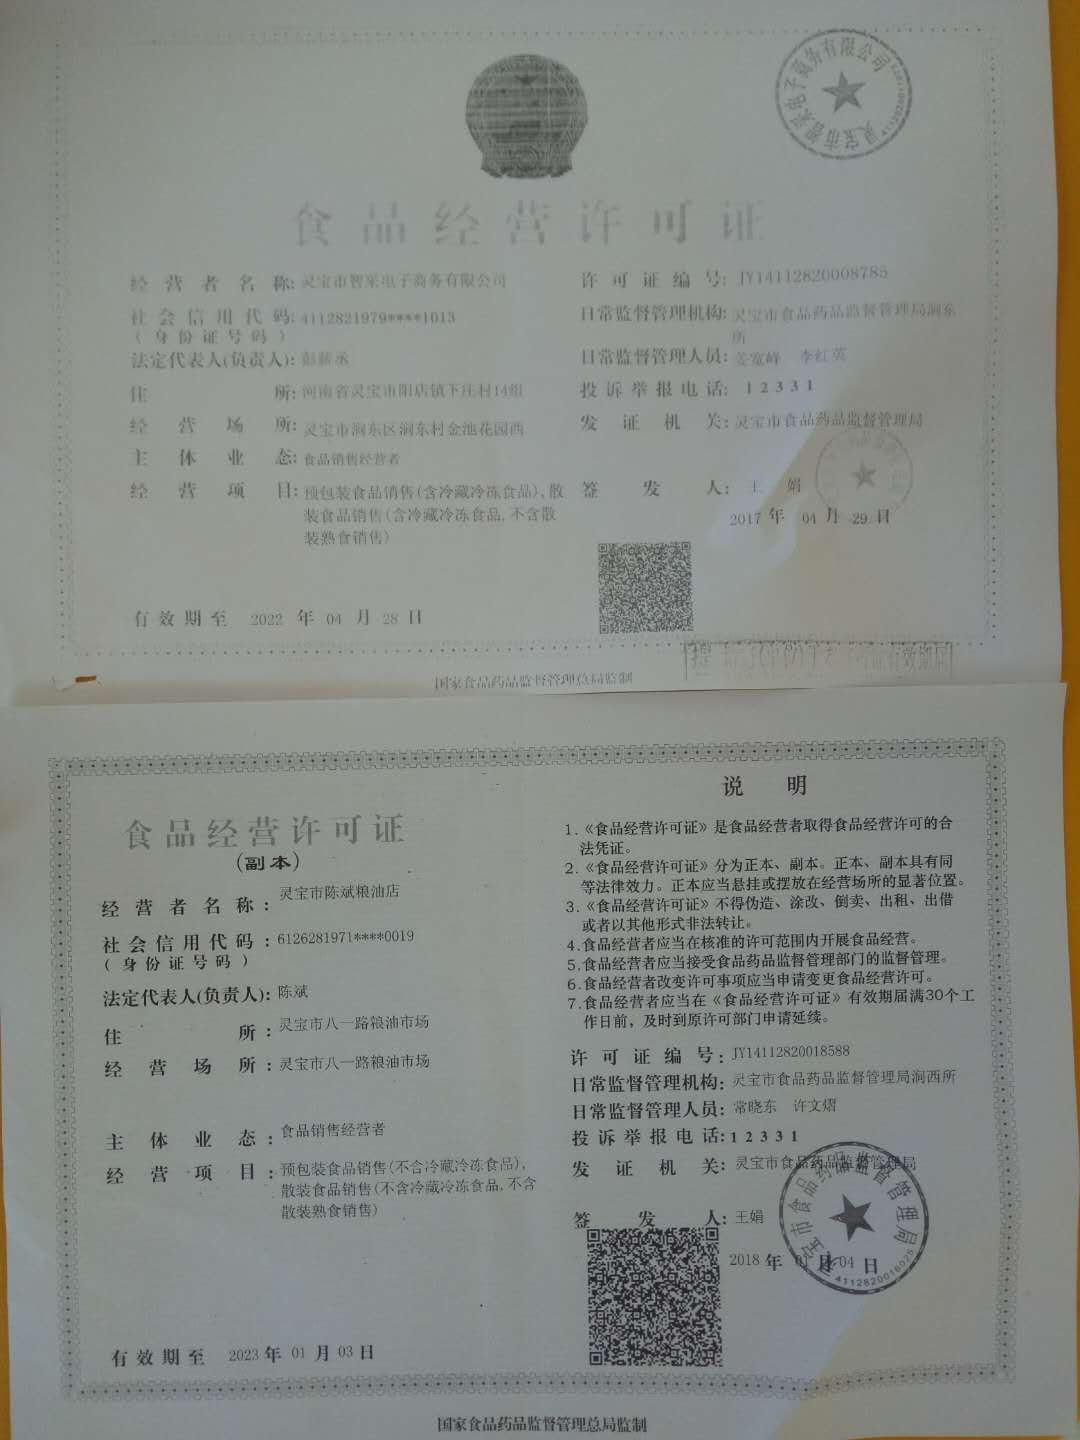 灵宝市智采电子商务有限公司
食品经营许可证
经营者名称:灵宝市智采电子商务有限公司
社会信用代码:4112821979****1013
(身份证号码)
法定代表人(负责人):
住所:河南省灵宝市阳店镇下庄村14组
经营场所:灵宝市涧东区涧东村金池花园西
主体业态:食品销售经营者
经营项目:预包装食品销售(含冷藏冷冻食品),散
装食品销售(含冷藏冷冻食品,不含散
装熟食销售)
有效期至 2022 年 04 月 28 日
许可证编号:JY14112820008785
日常监督管理机构:灵宝市食品药品监督管理局涧东
所
日常监督管理人员:姜宽峰 李红英
投诉举报电话:12331
发证机关:灵宝市食品药品监督管理局
签发人:王娟
2017 年 04 月 29 日
国家食品药品监督管理总局监制
食品经营许可证
(副本)
经营者名称:灵宝市陈斌粮油店
社会信用代码:6126281971****0019
(身份证号码)
法定代表人(负责人):陈斌
住所:灵宝市八一路粮油市场
经营场所:灵宝市八一路粮油市场
主体业态:食品销售经营者
经营项目:预包装食品销售(不含冷藏冷冻食品),
散装食品销售(不含冷藏冷冻食品,不含
散装熟食销售)
有效期至 2023 年 01 月 03 日
说明
1.《食品经营许可证》是食品经营者取得食品经营许可的合
法凭证。
2.《食品经营许可证》分为正本、副本。正本、副本具有同
等法律效力。正本应当悬挂或摆放在经营场所的显著位置。
3.《食品经营许可证》不得伪造、涂改、倒卖、出租、出借
或者以其他形式非法转让。
4.食品经营者应当在核准的许可范围内开展食品经营。
5.食品经营者应当接受食品药品监督管理部门的监督管理。
6.食品经营者改变许可事项应当申请变更食品经营许可。
7.食品经营者应当在《食品经营许可证》有效期届满30个工
作日前,及时到原许可部门申请延续。
许可证编号:JY14112820018588
日常监督管理机构:灵宝市食品药品监督管理局涧西所
日常监督管理人员:常晓东 许文熠
投诉举报电话:12331
发证机关:灵宝市食品药品监督管理局
签发人:王娟
2018 年 01 月 04 日
灵宝市食品药品监督管理局
4112820016025
国家食品药品监督管理总局监制